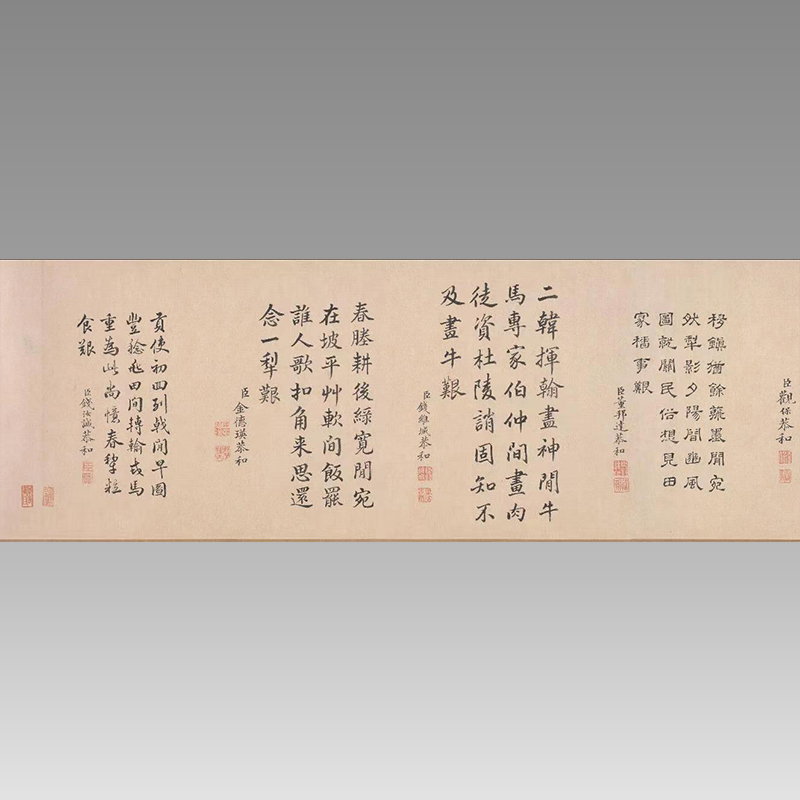 臣觀保恭和
移鎮猶餘藻墨閒宛
然犁影夕陽間豳風
圖就關民俗想見田
家穡事艱
臣董邦達恭和
二韓揮翰畫神閒牛
馬專家伯仲間畫肉
徒資杜陵誚固知不
及畫牛艱
臣錢維城恭和
春塍耕後綠寬閒宛
在坡平艸軟間飯罷
誰人歌扣角来思還
念一犁艱
臣金德瑛恭和
貢使初回列戟閒早圖
豐稔田間轉輸馬
重為此尚憶春犁粒
食艱
臣錢汝誠恭和